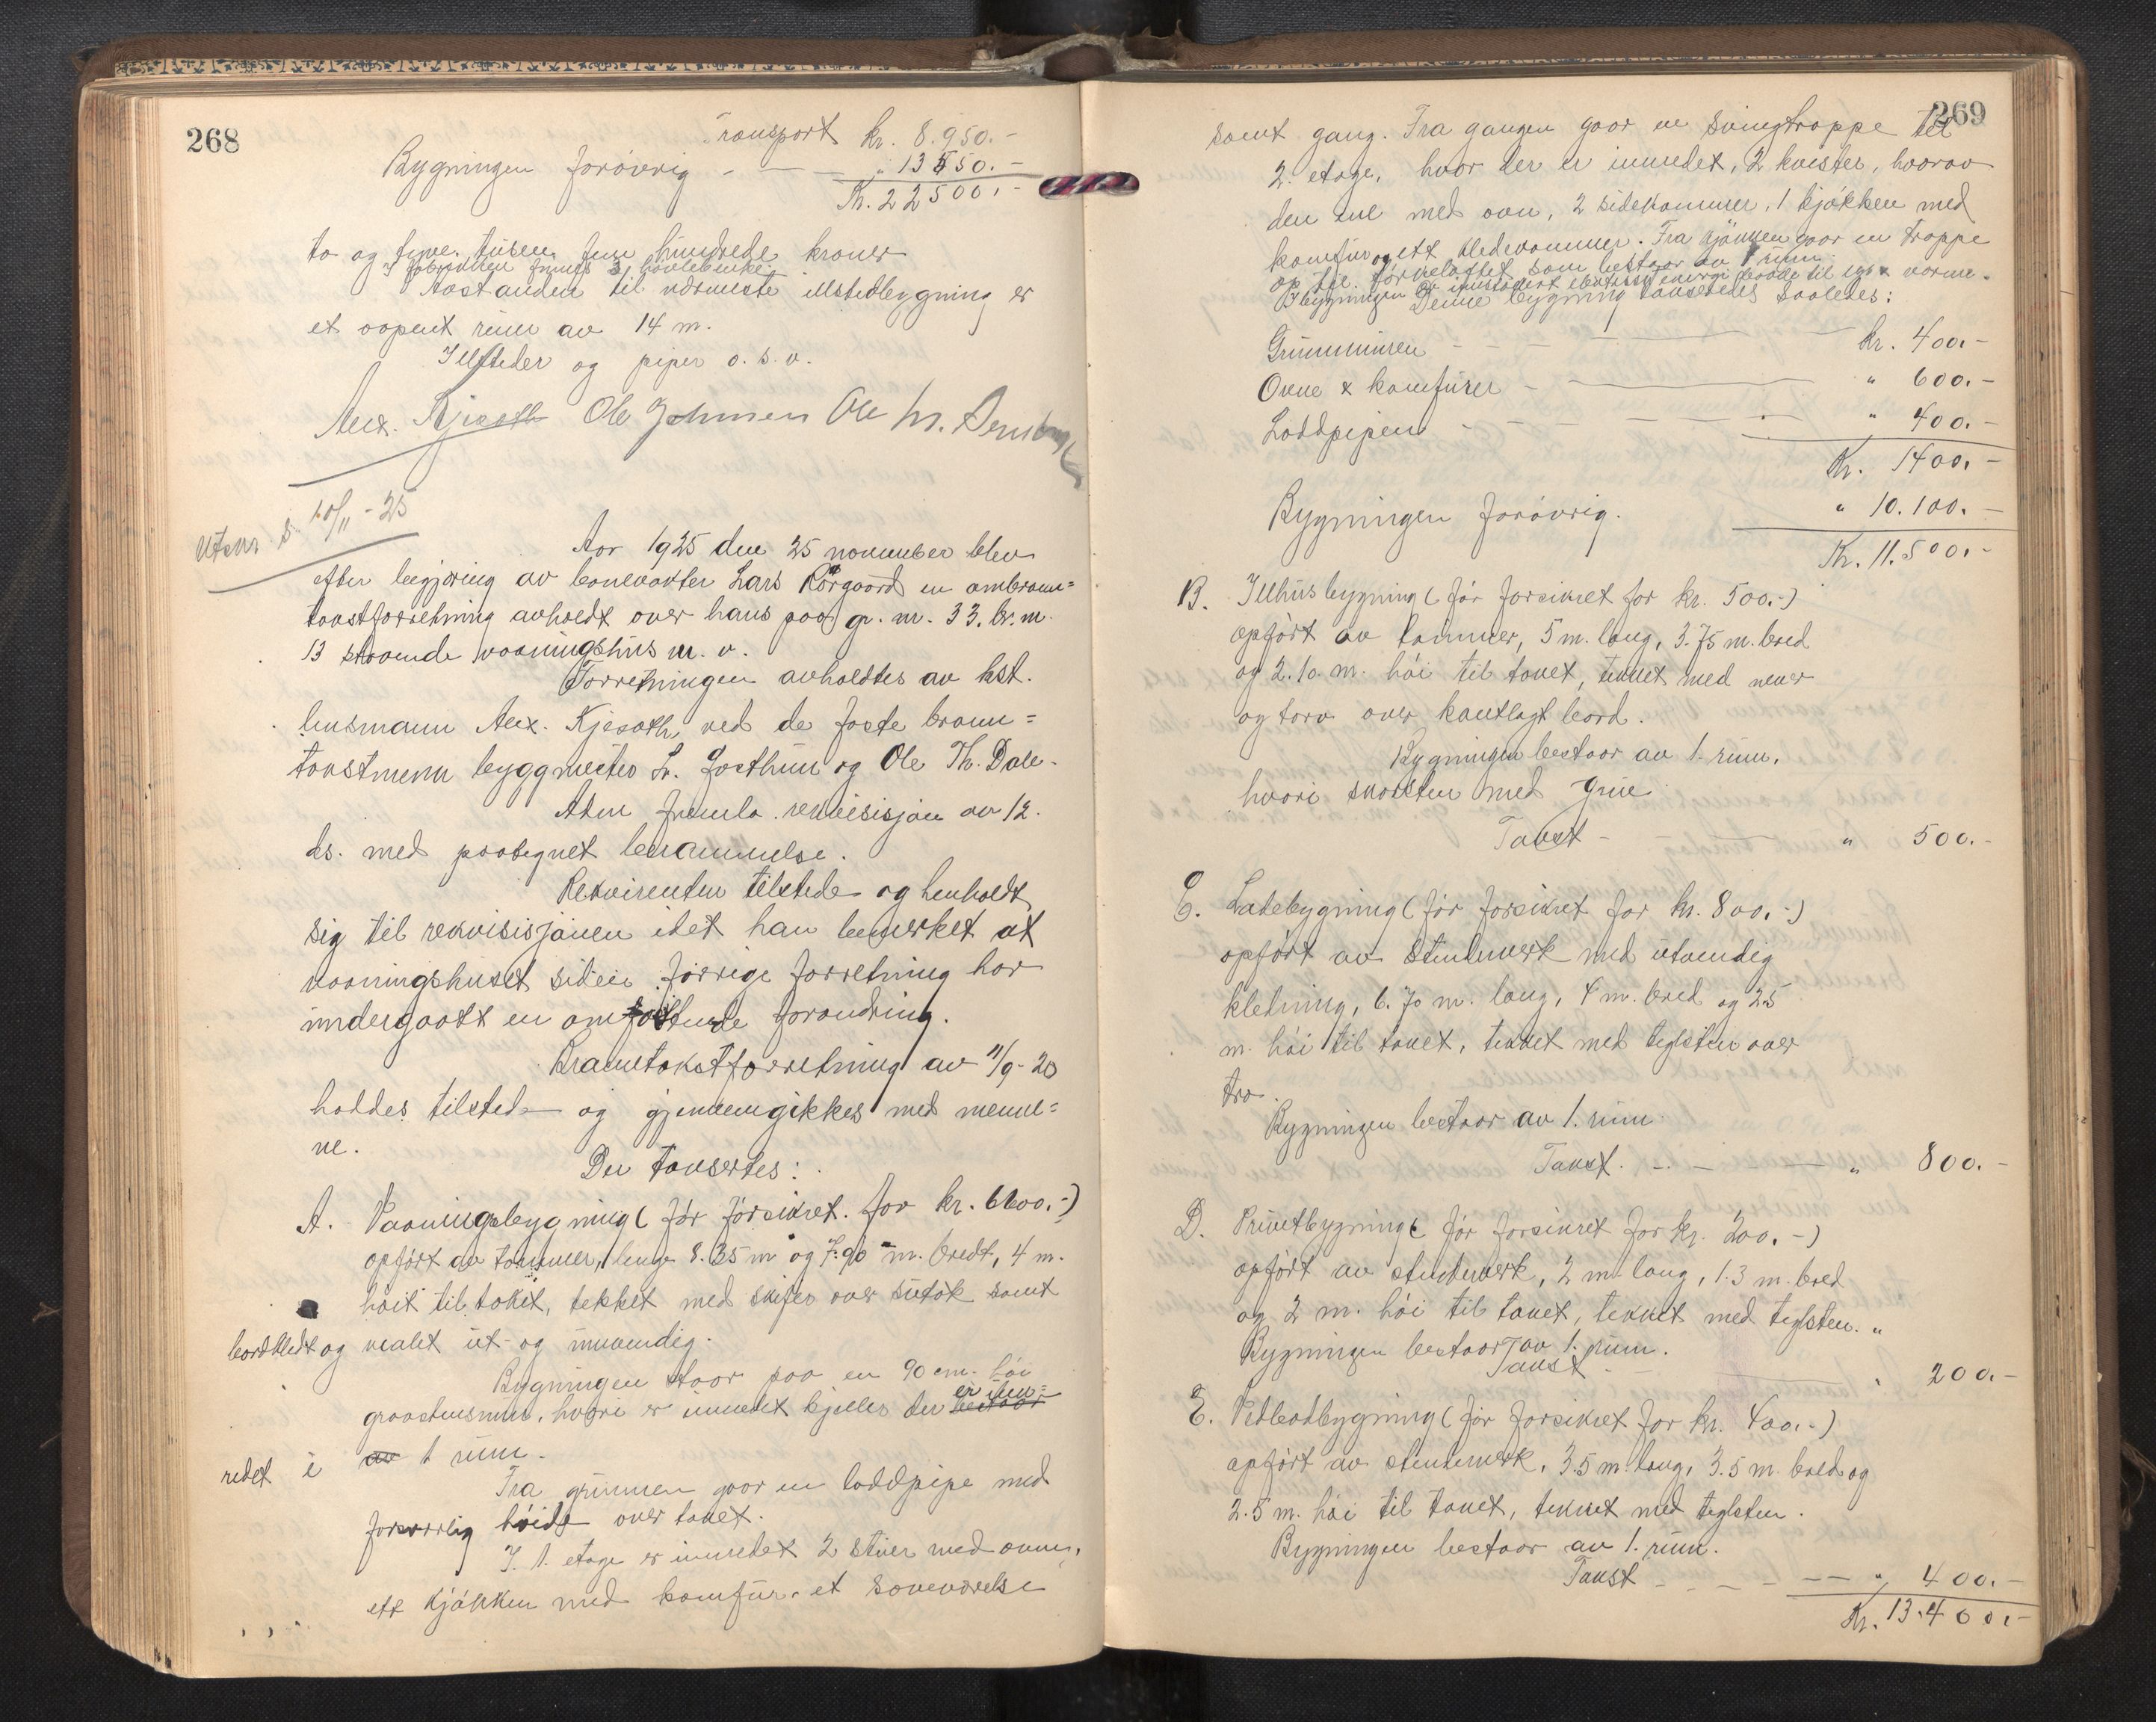 268
Transport kr. 8.950.-
Bygningen forøvrig - — — " 13550.-
Kr. 22500.-
to og tyve tusen fem hundrede kroner
I fabrikken finnes 3 høvlebenker.
Avstanden til nærmeste illstedbygning er
et aapent rum av 14 m.
Illsteder og piper o. s. v.
Alex. Kjesoth Ole Johnsen Ole M.
Utskr. S. 10/11 - 25
Aar 1925 den 25 november blev
efter begjæring av banevakter Lars Rørgaard en ombrann=
takstforretning avholdt over hans paa gr. nr. 33, br. nr.
13 staaende vaaningshus m. v.
Forretningen avholdtes av kst.
lensmann Alex. Kjesoth ved de faste brann=
takstmenn byggmester Lr. Josthun og Ole Th. Dale.
Aten fremla rekvisisjon av 12.
ds. med paategnet berammelse.
Rekvirenten tilstede og henholdt
sig til rekvisisjonen idet han bemerket at
vaaningshuset siden forrige forretning har
undergaatt en omfattende forandring.
Branntakstforretning av 11/9 - 20
haddes tilstede og gjennemgikkes med menne=
ne.
Der taksertes:
A. Vaaningsbygning (før forsikret for kr. 6600.-)
opført av tømmer, lenge 8.35 m og 7.90 m. bredt, 4 m.
høit til taket, tekket med skifer over sutak samt
bordkledt og malet ut- og innvendig.
Bygningen staar paa en 90 cm. høi
graastensmur, hvori er innredet kjeller der bestaar er inn=
redet i av 1 rum.
Fra grunnen gaar en loddpipe med
forsvarlig høide over taket.
I 1. etage er innredet 2 stuer med ovner,
ett kjøkken med komfur, et soveværelse
269
samt gang. Fra gangen gaar en svingtrappe til
2. etage, hvor der er innredet, 2 kvister, hvorav
den ene med ovn, 2 sidekammer, 1 kjøkken med
komfur og ett kledekammer. Fra kjøkken gaar en trappe
op til tørkeloftet som bestaar av 1 rum.
I bygningen er innstallert elektrisk energi baade til lys & varme.
Denne bygning taksertes saaledes:
Grunnmuren - - - — — kr. 400.-
Ovne & komfurer - — — " 600.-
Loddpipen - - - — — " 400.-
Kr. 1400.-
Bygningen forøvrig. " 10.100.-
Kr. 11.500.-
B. Illhusbygning (før forsikret for kr. 500.-)
opført av tømmer, 5 m. lang, 3.75 m. bred
og 2.10 m. høi til taket, tekket med never
og torv over kantlagt bord.
Bygningen bestaar av 1. rum,
hvori skorsten med grue
Takst - — " 500.-
C. Ladebygning (før forsikret for kr. 800.-)
opført av stenderverk med utvendig
kledning, 6.70 m. lang, 4 m. bred og 2.5
m. høi til taket, tekket med teglsten over
tro.
Bygningen bestaar av 1. rum
Takst. - - — " 800.-
D. Privetbygning (før forsikret for kr. 200.-)
opført av stenderverk, 2 m. lang, 1.3 m. bred
og 2 m. høi til taket, tekket med teglsten. "
Bygningen bestaar av 1. rum.
Takst - — " 200.-
E. Vedbodbygning (før forsikret for kr. 400.-)
opført av stenderverk, 3.5 m. lang, 3.5 m. bred og
2.5 m. høi til taket, tekket med teglsten.
Bygningen bestaar av 1. rum.
Takst - - - — " 400.-
Kr. 13.400.-